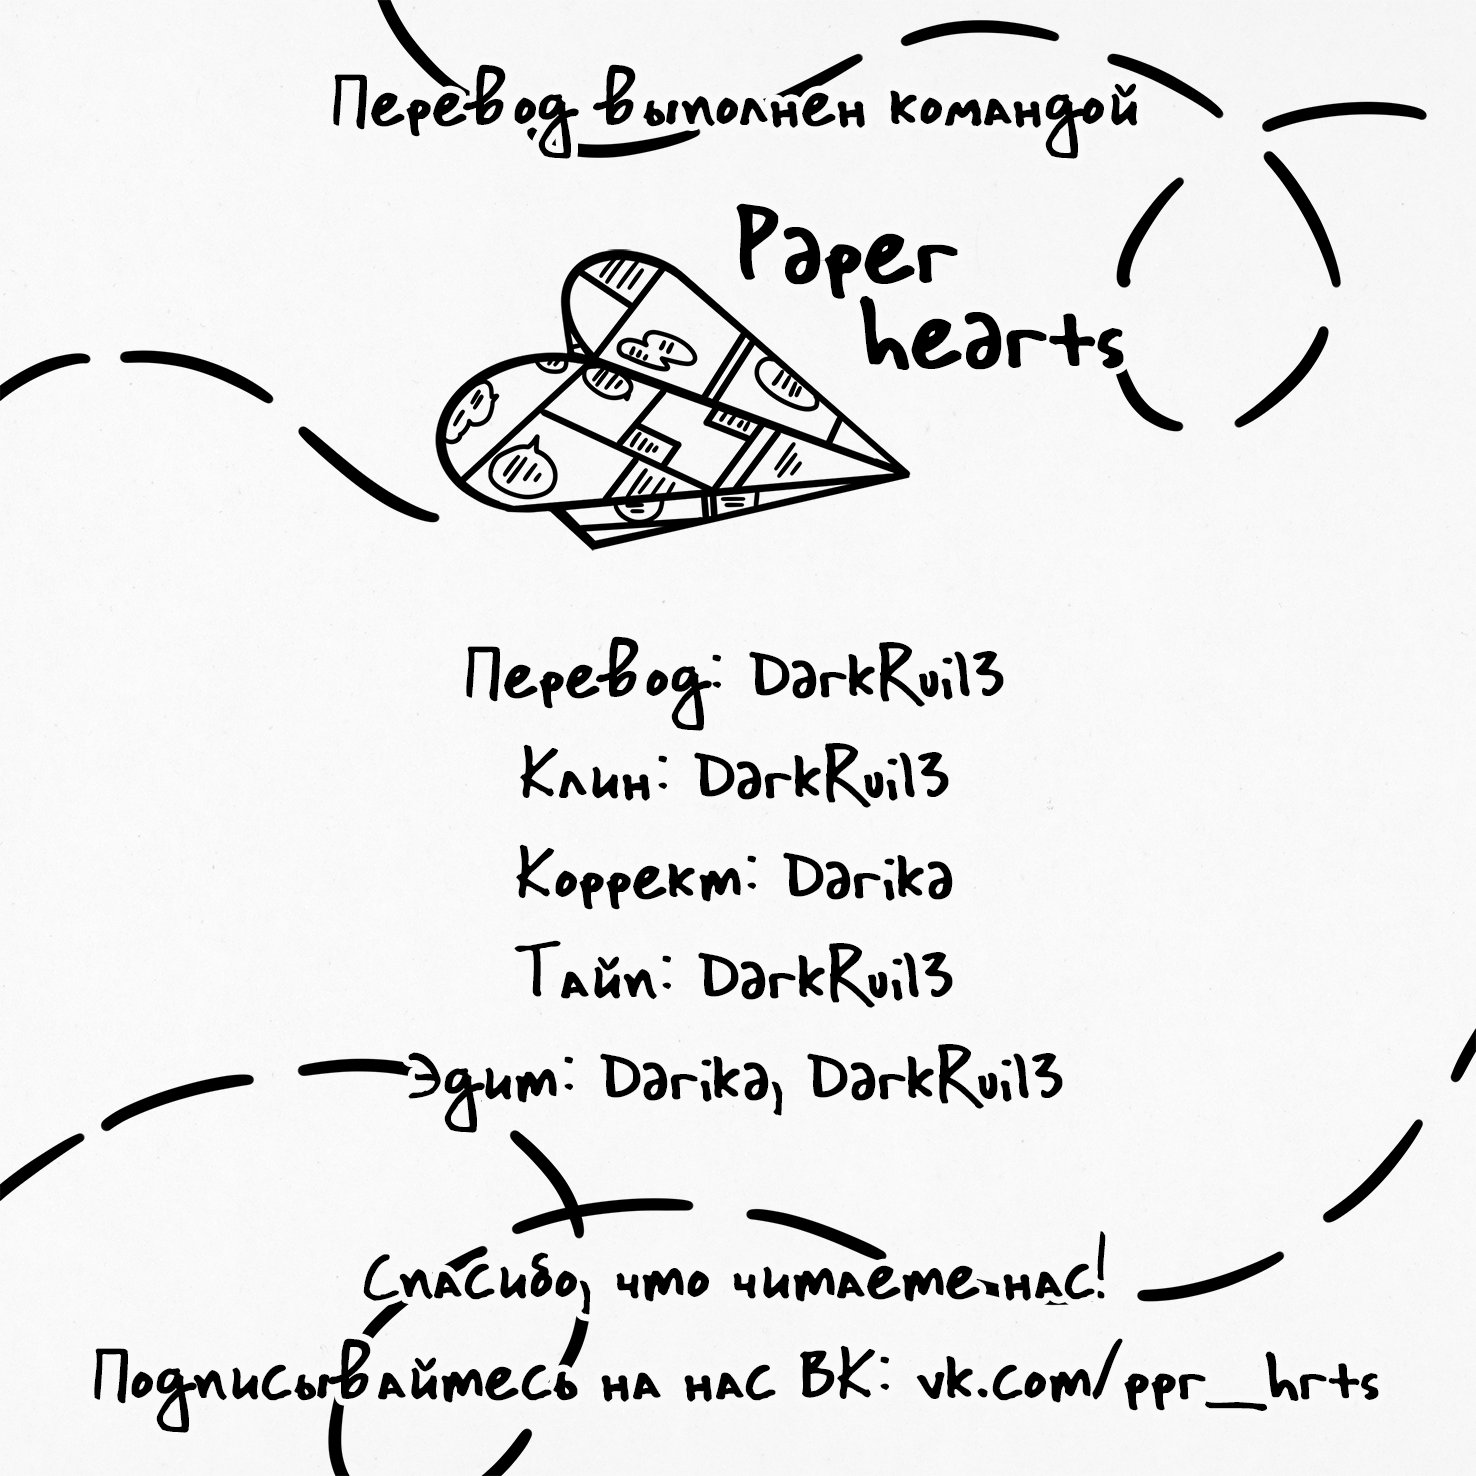 Перевод выполнен командой
Paper
hearts
Перевод: DarkRui13
Клин: DarkRui13
Коррект: Darika
Тайп: DarkRui13
Эдит: Darika, DarkRui13
Спасибо, что читаете нас!
Подписывайтесь на нас ВК: vk.com/ppr__hrts